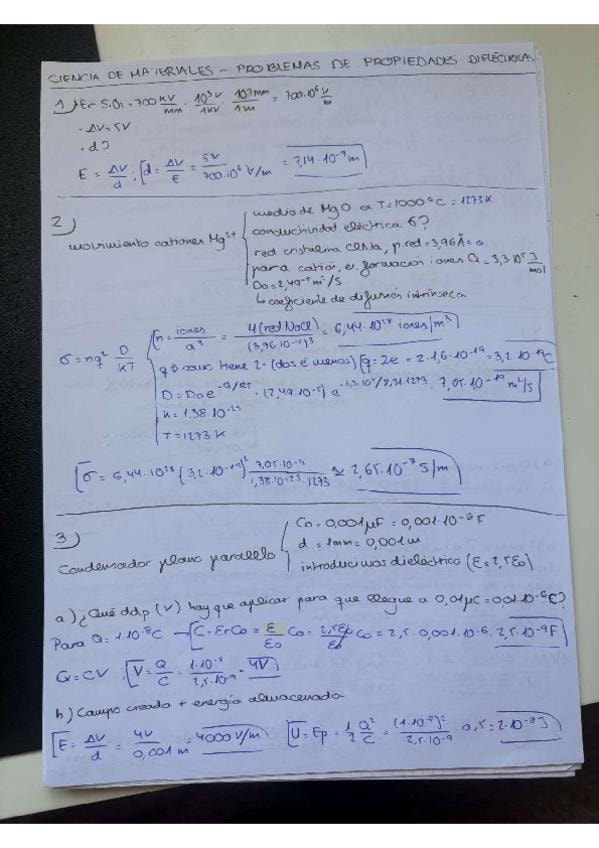 CIENCIA DE MATERIALES - PROBLEMAS DE PROPIEDADES DIELÉCTRICAS
1) Er SiO2 = 700 KV/mm · 10³V/1KV · 10³mm/1m = 700·10⁶ V/m
· ΔV = 5V
· d?
E = ΔV/d ; d = ΔV/E = 5V/700·10⁶ V/m = 7,14·10⁻⁹ m
2)
movimiento cationes Mg²⁺
medio de MgO a T=1000°C = 1273K
conductividad eléctrica σ?
red cristalina ClNa, p.red = 3,96Å = a
para catión, e. formación iones Q = 3,3·10⁵ J/mol
D₀ = 2,49⁻⁵ m²/S
↳ coeficiente de difusión intrínseca
σ = nq² D/KT
n = iones/a³ = 4(red NaCl)/(3,96·10⁻¹⁰)³ = 6,44·10²⁸ iones/m³
q → como tiene 2+ (dos é menos) q = 2e = 2·1,6·10⁻¹⁹ = 3,2·10⁻¹⁹C
D = D₀ e^-Q/RT = (2,49·10⁻⁵) e^-3,3·10⁵/8,31·1273 = 7,05·10⁻¹⁹ m²/s
K = 1,38·10⁻²³
T = 1273K
σ = 6,44·10²⁸ (3,2·10⁻¹⁹)² 7,05·10⁻¹⁹/1,38·10⁻²³·1273 ≃ 2,65·10⁻⁷ S/m
3)
Condensador plano paralelo
C₀ = 0,001μF = 0,001·10⁻⁶F
d = 1mm = 0,001m
introducimos dieléctrico (ε = 2,5ε₀)
a) ¿Qué ddp (V) hay que aplicar para que llegue a 0,01μC = 0,01·10⁻⁶C?
Para Q = 1·10⁻⁸C → C = Er C₀ = ε/ε₀ C₀ = 2,5ε₀/ε₀ C₀ = 2,5·0,001·10⁻⁶ = 2,5·10⁻⁹F
Q = CV ; V = Q/C = 1·10⁻⁸/2,5·10⁻⁹ = 4V
b) Campo creado + energía almacenada
E = ΔV/d = 4V/0,001m = 4000V/m U = Ep = 1/2 Q²/C = (1·10⁻⁸)²/2,5·10⁻⁹ · 0,5 = 2·10⁻⁸J